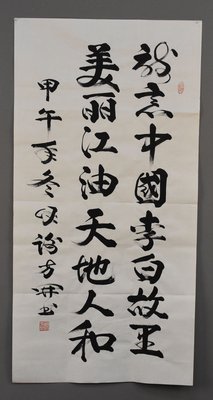 中國李白故里
美丽江油天地人和
甲午年冬月方书